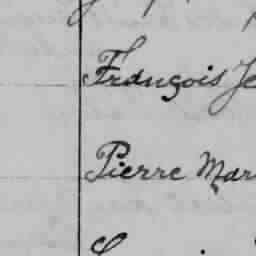 François Je
Pierre Mar